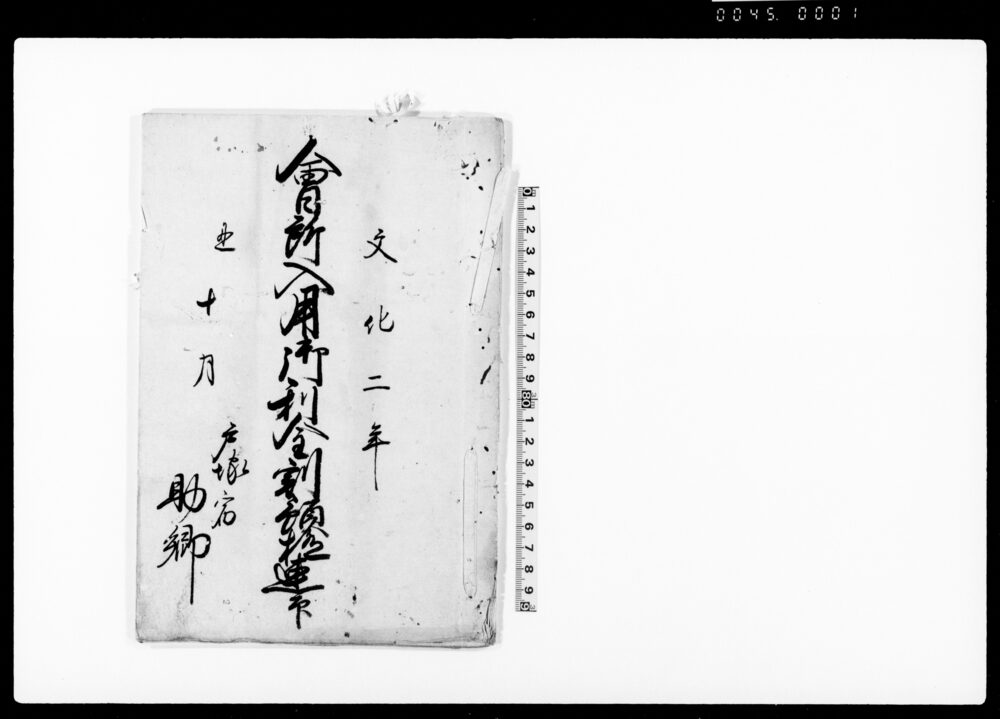 0045. 0001
文化二年
會所入用御利金割預拯連印
丑十月
戸塚宿
助郷
0 1 2 3 4 5 6 7 8 9 80 1 2 3 4 5 6 7 8 9